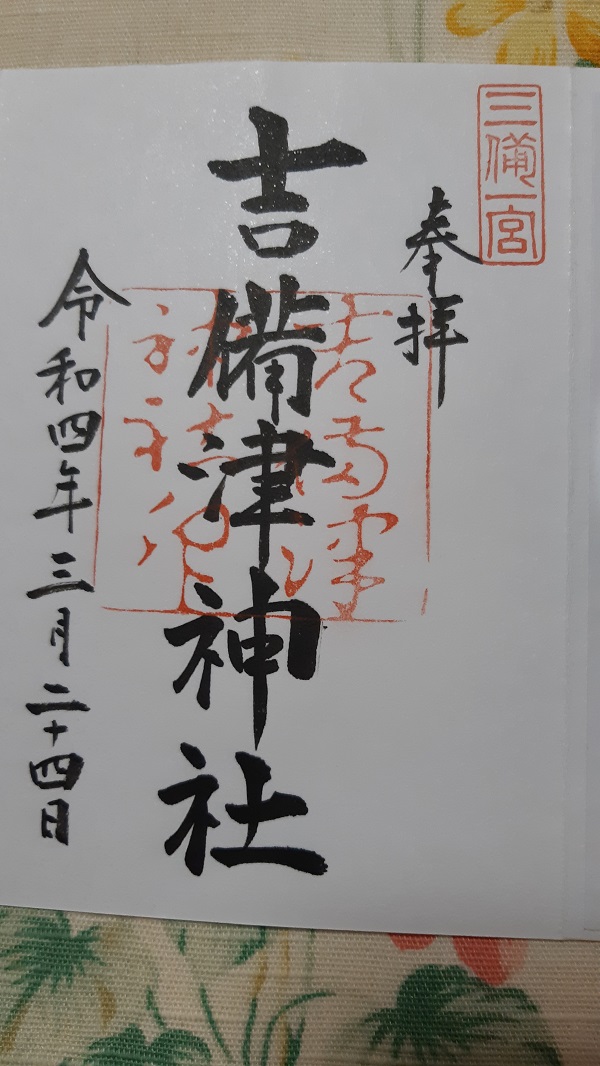 三備一宮
奉拝
吉備津神社
令和四年三月二十四日